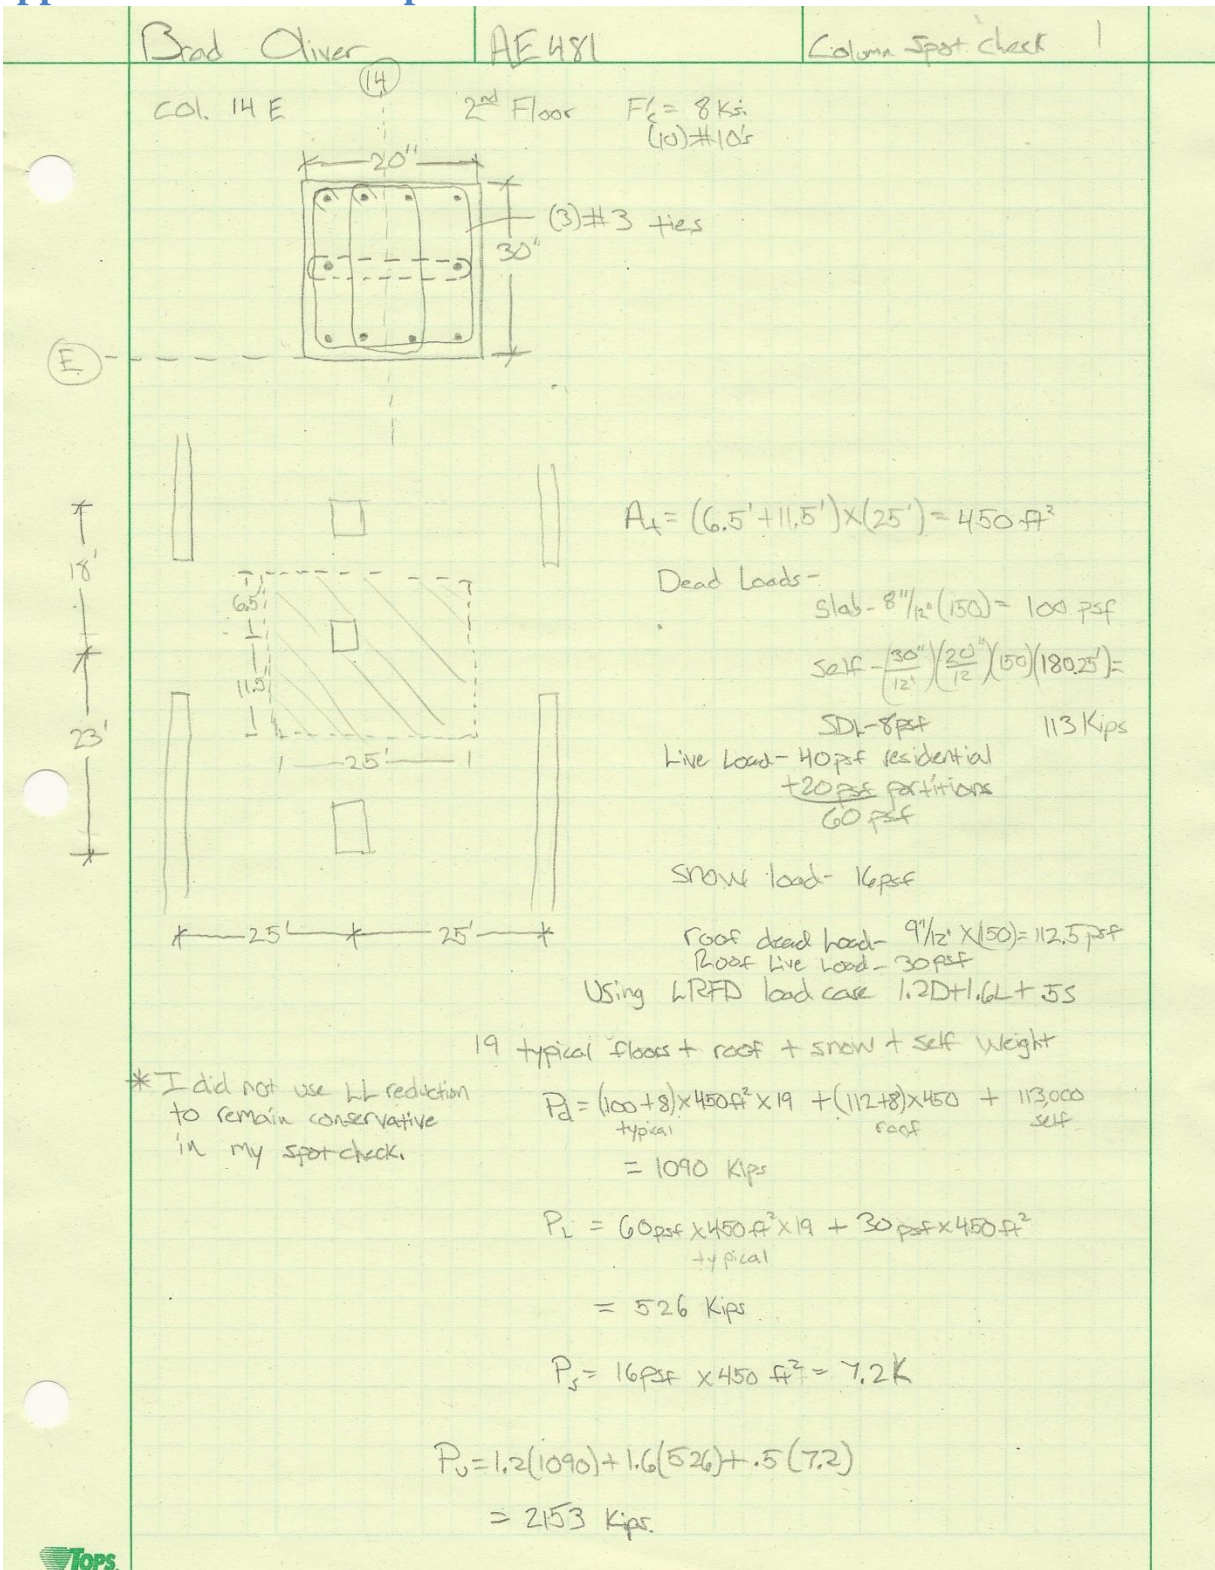 Brad Oliver
AE 481
Column Spot Check
1
14
COL. 14 E
2nd Floor
F'c = 8 Ksi
(10)#10's
20"
(3)#3 ties
30"
E
18'
6.5'
11.5'
23'
25'
25'
25'
At = (6.5'+11.5')x(25') = 450 ft²
Dead Loads-
Slab- 8"/12" (150) = 100 psf
Self - (30"/12')(20"/12)(150)(180.25') =
SDL-8psf
113 Kips
Live Load- 40psf residential
+20 psf partitions
60 psf
Snow load- 16psf
roof dead load- 9"/12' x(150) = 112.5 psf
Roof Live Load - 30psf
Using LRFD load case 1.2D+1.6L+.5S
19 typical floors + roof + snow + self weight
* I did not use LL reduction
to remain conservative
in my spot check.
Pd = (100+8)x450ft²x19 + (112+8)x450 + 113,000
typical
roof
self
= 1090 Kips
PL = 60psf x450 ft²x19 + 30 psf x450 ft²
typical
= 526 Kips
Ps = 16psf x450 ft² = 7.2K
Pu = 1.2(1090)+1.6(526)+.5(7.2)
= 2153 Kips.
TOPS